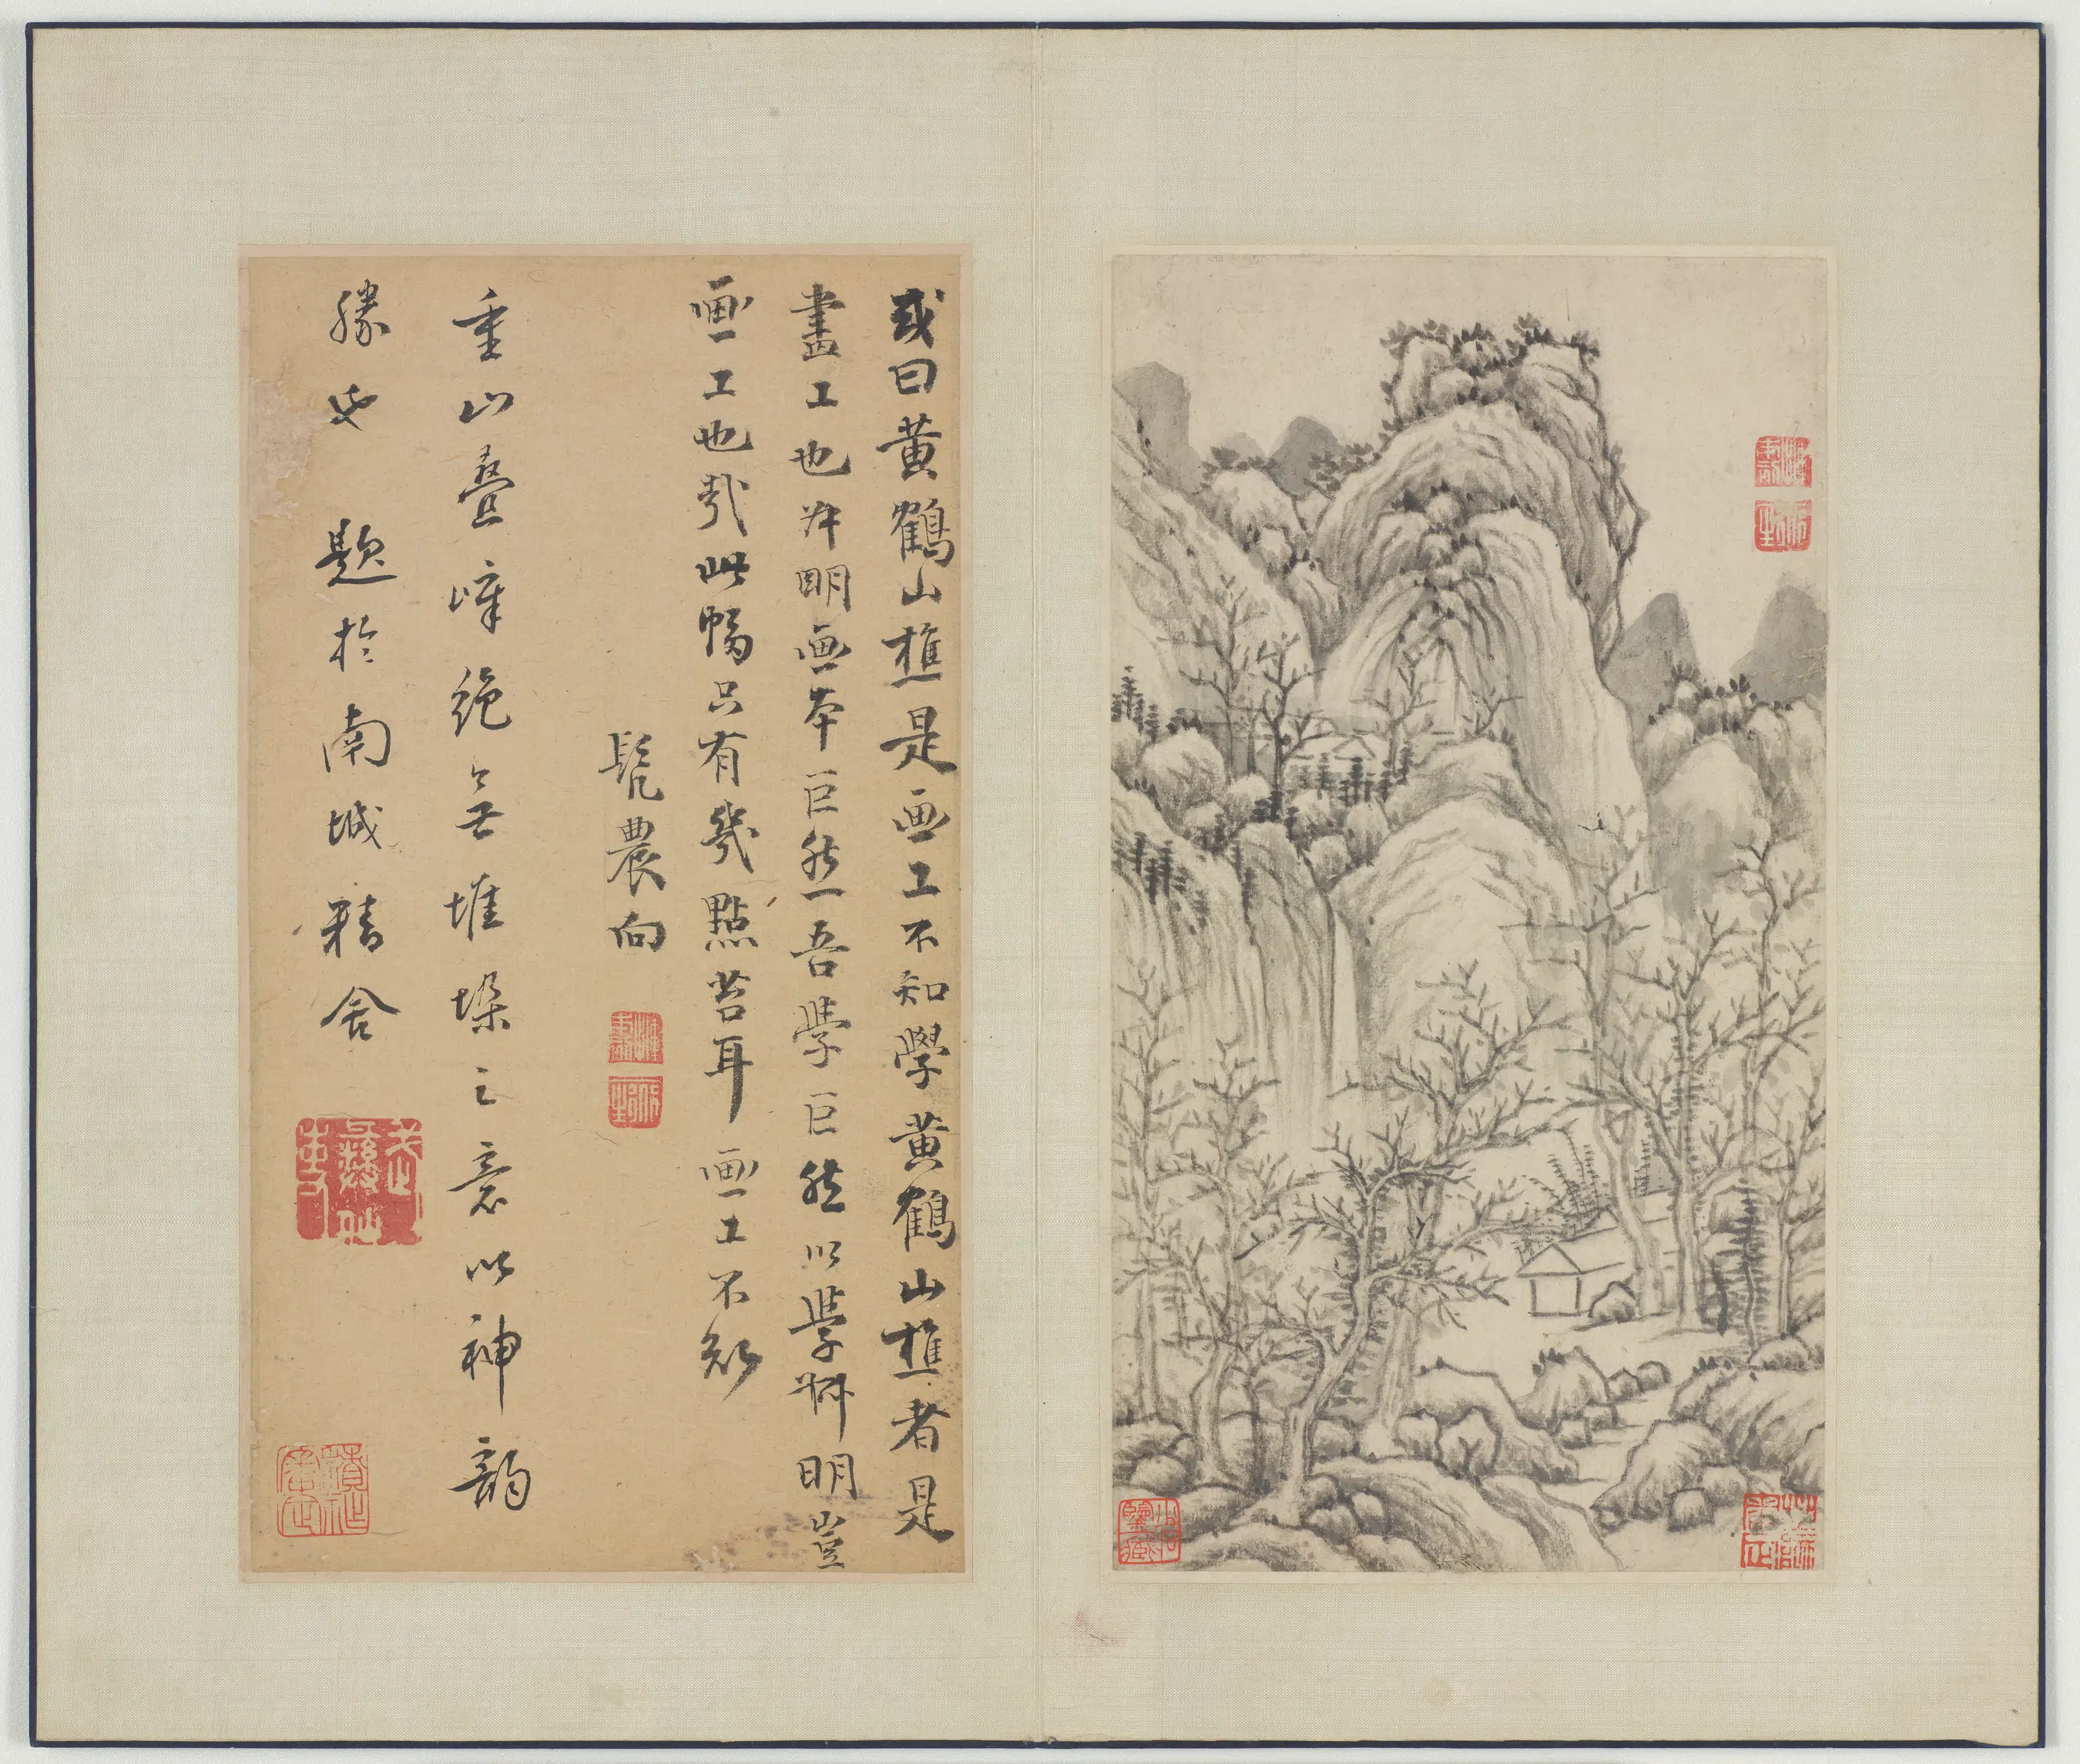 或曰黄鶴山樵是画工不知學黄鶴山樵者是
畫工也叔明画本巨然吾學巨然以學叔明豈
画工也哉此幅只有幾點苔耳画工不知
髡農向
重山疊嶂絶無堆垛之意以神韵
勝也 題於南城精舍